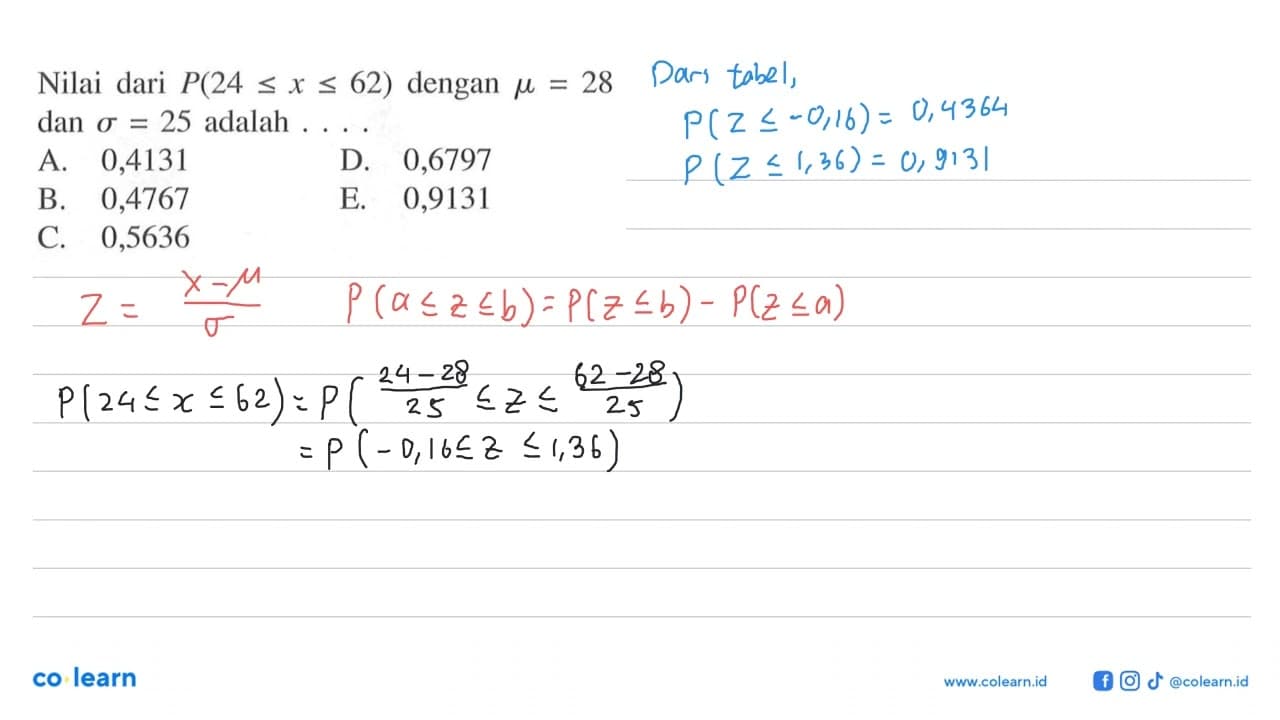 Nilai dari P(24 ≤ x ≤ 62) dengan μ = 28
dan σ = 25 adalah . . . .
A. 0,4131 D. 0,6797
B. 0,4767 E. 0,9131
C. 0,5636
Dari tabel,
P(Z ≤ -0,16) = 0,4364
P(Z ≤ 1,36) = 0,9131
Z = (x-μ)/σ P(a ≤ z ≤ b) = P(z ≤ b) - P(z ≤ a)
P(24 ≤ x ≤ 62) = P((24-28)/25 ≤ z ≤ (62-28)/25)
= P(-0,16 ≤ z ≤ 1,36)
co learn
www.colearn.id @colearn.id